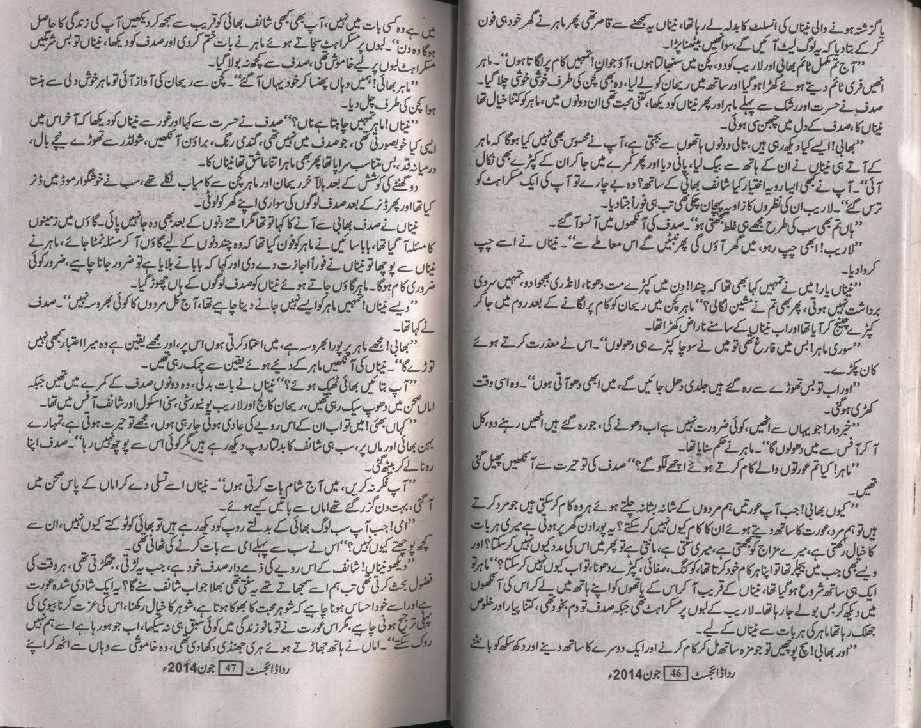 یا گزشتہ ہونے والی نیناں کی انسلٹ کا بدلہ لے رہا تھا، نیناں یہ سمجھنے سے قاصر تھی پھر ماہر نے گھر خود ہی فون
کر کے بتا دیا کہ یہ لوگ لیٹ آئیں گے، سو انھیں بیٹھنا پڑا۔
"آج تم مکمل ٹائم بھائی اور لاریب کو دو، کچن میں سنبھالتا ہوں، آؤ جوان! تمہیں کام پر لگاتا ہوں"۔ ماہر
انھیں فری ٹائم دیتے ہوئے کھڑا ہو گیا اور ساتھ میں ریحان کو لے لیا، وہ بھی کچن کی طرف خوشی خوشی چلا گیا۔
صدف نے حسرت اور رشک سے پہلے ماہر اور پھر نیناں کو دیکھا، کتنی محبت تھی ان دونوں میں، ماہر کو کتنا خیال تھا
نیناں کا، صدف کے دل میں چبھن سی ہوئی۔
"بھابی! ایسے کیا دیکھ رہی ہیں، تالی دونوں ہاتھوں سے بجتی ہے، آپ نے محسوس بھی نہیں کیا ہو گا کہ ماہر
کے آتے ہی نیناں نے ان کے ہاتھ سے بیگ لیا، پانی دیا اور پھر کمرے میں جا کر ان کے کپڑے بھی نکال
آئی"۔ آپ نے بھی ایسا رویہ اختیار کیا شائف بھائی کے ساتھ؟ وہ بے چارے تو آپ کی ایک مسکراہٹ کو
ترس گئے"۔ لاریب ان کی نظروں کا زاویہ پہچان چکی تھی تب ہی فوراً جتا دیا۔
"ہاں تم بھی سب کی طرح مجھے ہی غلط کہتی ہو"۔ صدف کی آنکھوں میں آنسو آ گئے۔
"لاریب! ابھی چپ رہو، میں گھر آؤں گی پھر نمٹیں گے اس معاملے سے"۔ نیناں نے اسے چپ
کروا دیا۔
"نیناں یار! میں نے تمہیں کہا بھی تھا کہ چند دن میں کپڑے مت دھونا، لانڈری بھجوا دو، تمہیں سردی
برداشت نہیں ہوتی، پھر بھی تم نے مشین لگا لی؟" ماہر کچن میں ریحان کو کام پر لگانے کے بعد روم میں جا کر
کپڑے چینج کر آیا تھا اور اب نیناں کے سامنے ناراض کھڑا تھا۔
"سوری ماہر! بس میں فارغ تھی تو میں نے سوچا کپڑے ہی دھو لوں"۔ اس نے معذرت کرتے ہوئے
کان پکڑے۔
"اور اب بس تھوڑے سے رہ گئے ہیں جلدی دھل جائیں گے، میں ابھی دھو آتی ہوں"۔ وہ اسی وقت
کھڑی ہو گئی۔
"خبردار! جو یہاں سے اٹھیں، کوئی ضرورت نہیں ہے اب دھونے کی، جو رہ گئے ہیں انھیں رہنے دو، کل
آ کر آفس سے میں دھو لوں گا"۔ ماہر نے حکم سنایا تھا۔
"ماہر! کیا تم عورتوں والے کام کرتے ہوئے اچھے لگو گے؟" صدف کی تو حیرت سے آنکھیں پھیل گئی
تھیں۔
"کیوں بھابی! جب آپ عورتیں ہم مردوں کے شانہ بشانہ چلتے ہوئے ہر وہ کام کر سکتی ہیں جو مرد کرتے
ہیں تو ہم مرد، عورت کا ساتھ دیتے ہوئے ان کا کام کیوں نہیں کر سکتے؟ یہ پورا دن گھر پر ہوتی ہے میری ہر بات
کا خیال رکھتی ہے، میرے مزاج کو سمجھتی ہے، میری سنتی ہے، مانتی ہے تو پھر میں اس کی مدد کیوں نہیں کر سکتا؟ اور
ویسے بھی جب میں بیچلر تھا تو اپنا ہر کام خود کرتا تھا، کوکنگ، صفائی، کپڑے دھونا، تو اب کیوں نہیں کر سکتا؟" ماہر تو
ایک ہی ساتھ شروع ہو گیا تھا، نیناں کے قریب آ کر اس کے ہاتھوں کو اپنے ہاتھ میں لے کر اس کی آنکھوں
میں دیکھ کر بس بولے جا رہا تھا۔ لاریب کے لبوں پر مسکراہٹ تھی جبکہ صدف تو دم بخود تھی، کتنا پیار اور خلوص
جھلک رہا تھا ماہر کی ہر بات سے نیناں کے لیے۔
"اور بھابی! سچ پوچھیں تو جو مزہ ساتھ مل کر کام کرنے اور ایک دوسرے کا ساتھ دینے اور دکھ سکھ کو بانٹنے
ردا ڈائجسٹ 46 جون 2014ء
میں ہے وہ کسی بات میں نہیں، آپ بھی کبھی شائف بھائی کو قریب سے سمجھ کر دیکھیں آپ کی زندگی کا حاصل
ہو گا وہ دن"۔ لبوں پر مسکراہٹ سجاتے ہوئے ماہر نے بات ختم کر دی اور صدف کو دیکھا، نیناں تو بس شرمگیں
مسکراہٹ لبوں پر لیے خاموش تھی، صدف سے کچھ نہ بولا گیا۔
"ماہر بھائی! ہمیں وہاں پھنسا کر خود یہاں آ گئے"۔ کچن سے ریحان کی آواز آئی تو ماہر خوش دلی سے ہنستا
ہوا کچن کی طرف چل دیا۔
"نیناں! ماہر تمہیں چاہتا ہے ناں؟" صدف نے حسرت سے کہا اور غور سے نیناں کو دیکھا کہ آخر اس میں
ایسی کیا خوبصورتی تھی، جو صدف میں نہیں تھی، گندمی رنگ، براؤن آنکھیں، شولڈر سے تھوڑے نیچے بال،
درمیانہ قد، بس متناسب سراپا تھا پھر بھی ماہر اتنا عاشق تھا نیناں کا۔
دو گھنٹے کی کوشش کے بعد بالآخر ریحان اور ماہر کچن سے کامیاب نکلے تھے، سب نے خوشگوار موڈ میں ڈنر
کیا تھا اور پھر ڈنر کے بعد صدف لوگوں کی سواری اپنے گھر کو لوٹی۔
نیناں نے صدف بھابی سے آنے کا کہا تو تھا مگر اتنے دنوں کے بعد بھی وہ جا نہیں پائی۔ گاؤں میں زمینوں
کا مسئلہ آ گیا تھا، بابا سائیں نے ماہر کو فون کیا تھا کہ وہ چند دنوں کے لیے گاؤں آ کر مسئلہ نمٹا جائے، ماہر نے
نیناں سے پوچھا تو نیناں نے فوراً اجازت دے دی اور کہا کہ بابا نے بلایا ہے تو ضرور جانا چاہیے، ضرور کوئی
ضروری کام ہو گا۔ ماہر گاؤں جاتے ہوئے نیناں کو صدف کے لوگوں کے ہاں چھوڑ گیا۔
"ویسے نیناں! تمہیں ماہر کو ایسے نہیں جانے دینا چاہیے تھا، آج کل مردوں کا کوئی بھروسہ نہیں"۔ صدف
نے کہا تھا۔
"بھابی! مجھے ماہر پر پورا بھروسہ ہے، میں اعتماد کرتی ہوں اس پر، اور مجھے یقین ہے وہ میرا اعتبار کبھی نہیں
توڑے گا"۔ نیناں کی آنکھیں ماہر کے دیئے ہوئے یقین سے چمک رہی تھیں۔
"آپ بتائیں بھائی ٹھیک ہوئے؟" نیناں نے بات بدلی، وہ دونوں صدف کے کمرے میں تھیں جبکہ
اماں صحن میں دھوپ سیک رہی تھیں، ریحان کالج اور لاریب یونیورسٹی، سنی اسکول اور شائف آفس میں تھا۔
"کہاں بھئی! میں تو اب ان کے اس رویے کی عادی ہوتی جا رہی ہوں، مجھے تو حیرت ہوتی ہے، تمہارے
بہن بھائی اور ماں پر، سب ہی شائف کا بدلتا روپ دیکھ رہے ہیں مگر کوئی اس سے پوچھ نہیں رہا"۔ صدف اپنا
رونا لے کر بیٹھ گئی۔
"آپ فکر نہ کریں، میں آج شام بات کرتی ہوں"۔ نیناں اسے تسلی دے کر اماں کے پاس صحن میں
آ گئی، بہت دن گزر گئے تھے اماں سے باتیں کیے ہوئے۔
"امی! جب آپ سب لوگ بھائی کے بدلتے روپ کو دیکھ رہے ہیں تو بھائی کو ٹوکتے کیوں نہیں، ان سے
کچھ پوچھتے کیوں نہیں؟" اس نے سب سے پہلے امی سے بات کرنے کی ٹھانی تھی۔
"دیکھو نیناں! شائف کے اس رویے کی ذمے دار صدف خود ہے، جب یہ لڑتی، جھگڑتی تھی، ہر وقت کی
فضول بحث کرتی تھی تب ہم اسے سمجھاتے تھے یہ سنتی تھی بھلا جو اب شائف سنے گا؟ ایک شادی شدہ عورت
ہے اور اسے خود احساس ہونا چاہیے کہ شوہر محبت کا بھوکا ہوتا ہے، شوہر کا خیال رکھنا، اس کی عزت کرنا بیوی کی
پہلی ترجیح ہونی چاہیے، مگر اس عورت نے تو مانو زندگی میں کوئی سبق ہی نہ سیکھا، اب جو ہو رہا ہے اسے ہم نہیں
روک سکتے"۔ اماں نے ہاتھ جھاڑتے ہوئے ہری جھنڈی دکھا دی تھی، وہ خاموشی سے وہاں سے اٹھ کر اپنے
ردا ڈائجسٹ 47 جون 2014ء